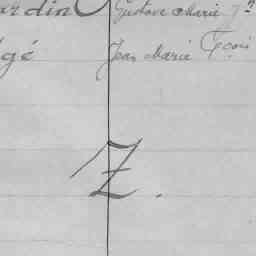 ardin Gustave Marie J.n
gé Jean Marie Fçois
Z.